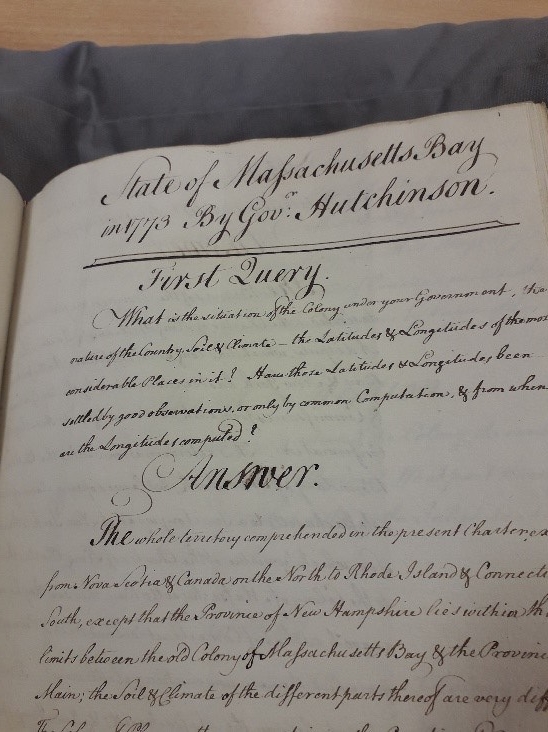 State of Massachusetts Bay
in 1773 By Gov.r Hutchinson.
First Query.
What is the situation of the Colony under your Government, the
nature of the Country, Soil & Climate – the Latitudes & Longitudes of the most
considerable Places in it? Have those Latitudes & Longitudes been
settled by good observations, or only by common Computation, & from when
are the Longitudes computed?
Answer.
The whole territory comprehended in the present Charter, ex
from Nova Scotia & Canada on the North to Rhode Island & Connecti
South, except that the Province of New Hampshire lies within th
limits between the old Colony of Massachusetts Bay & the Provinc
Main; the Soil & Climate of the different parts thereof are very diff